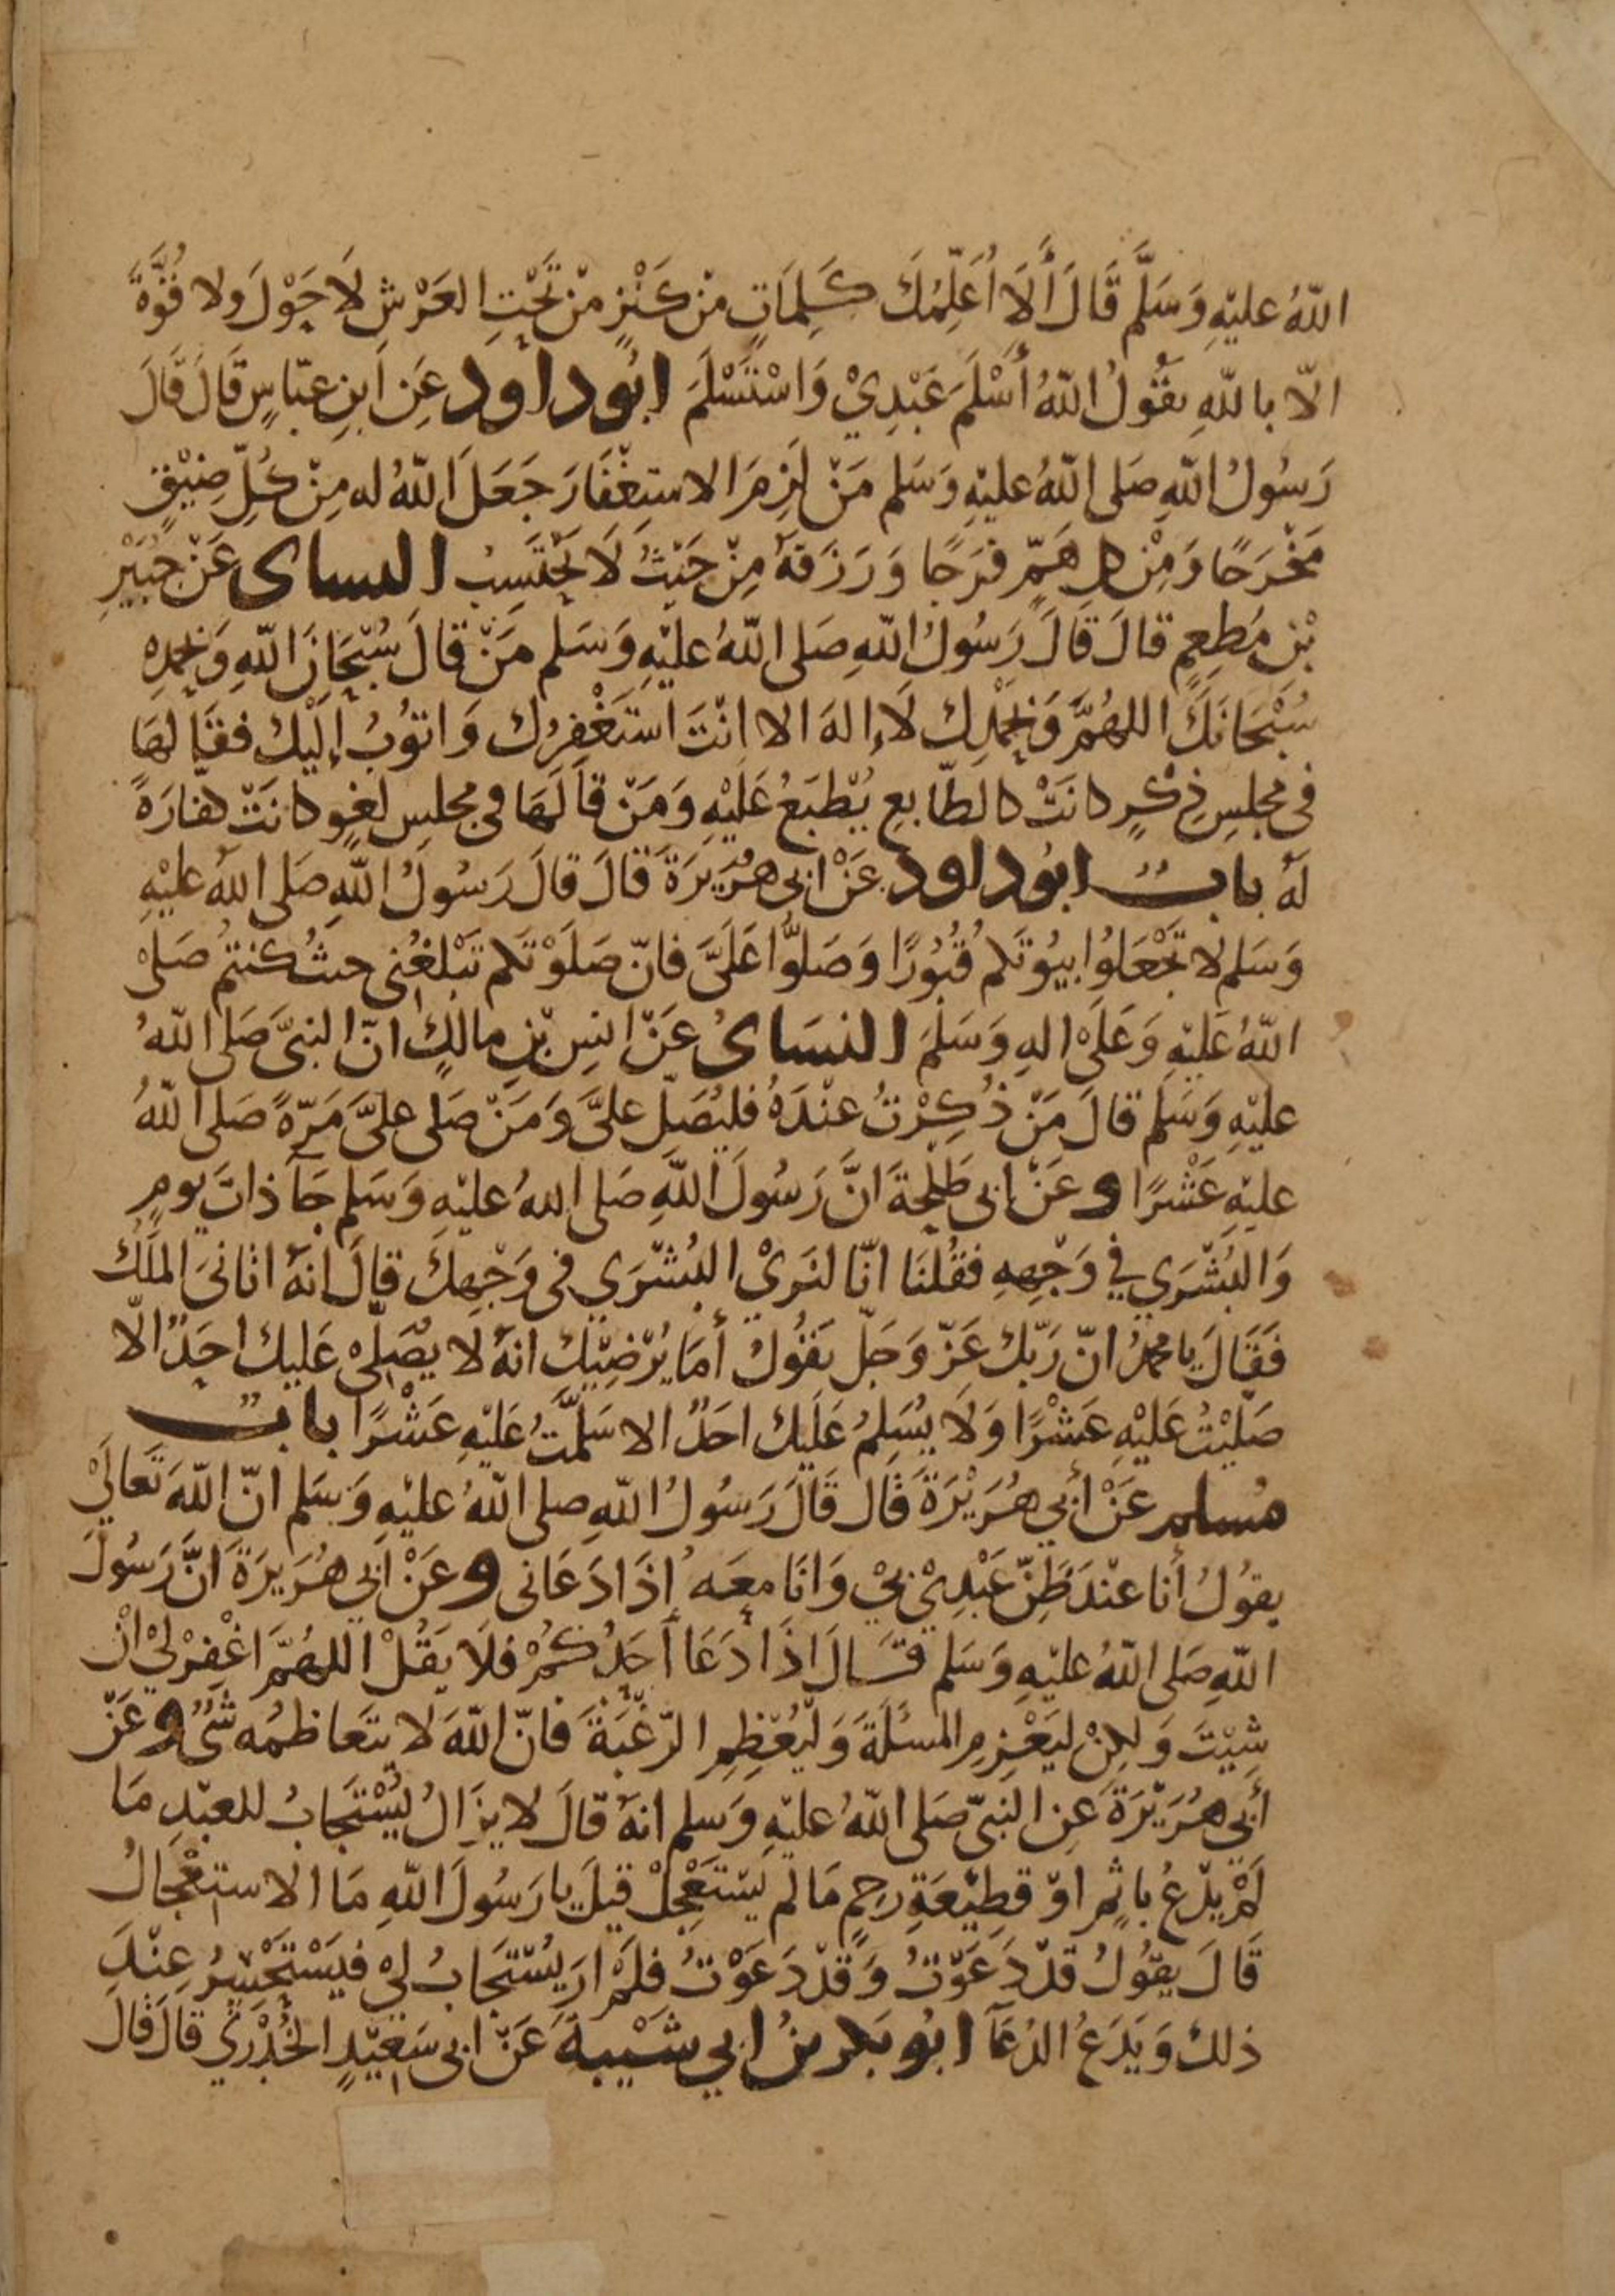 اللهُ عليْهِ وَسَلَّم قَالَ أَلَا أُعَلِّمُكَ كَلِمَاتٍ مِنْ كَنْزٍ مِنْ تَحْتِ العَرْشِ لَا حَوْلَ ولا قُوَّةَ
الّا باللهِ يقُولُ اللهُ أَسْلَمَ عَبْدِيْ وَاسْتَسْلَمَ ابُوداود عَنِ ابنِ عبّاسٍ قَالَ قَالَ
رَسُولُ اللهِ صَلى اللهُ عليْهِ وَسَلم مَنْ لَزِمَ الاستِغْفَارَ جَعَلَ اللهُ له مِنْ كُلِّ ضِيْقٍ
مَخْرَجًا وَمِنْ كلِ هَمٍّ فرَجًا وَرَزَقهُ مِنْ حَيْثُ لَا يَحْتَسِبُ النساى عَنْ جُبَيْرِ
بْنِ مُطعِمٍ قالَ قَالَ رَسُولُ اللهِ صَلى اللهُ عليْهِ وَسَلم مَنْ قالَ سُبْحَانَ اللهِ وَبحمدِهِ
سُبْحَانَكَ اللهُمَّ وَبحَمْدِك لَا إلهَ الا انْتَ اَستَغْفِرُك وَاتوُبُ إلَيْك فقَالهَا
فى مجلِسِ ذِكْرٍ كانَتْ كالطّابعِ يُطْبَعُ عَلَيْهِ وَمَنْ قالَهَا فى مجلسِ لغوٍ كانَتْ كفارَةً
لهُ بابٌ ابُوداود عَنْ ابى هُرَيرَةَ قالَ قالَ رَسُولُ اللهِ صَلى اللهُ عليْهِ
وَسَلم لا تجْعَلوُا بيُوتَكم قُبُورًا وَصَلوُّا عَلَىَّ فانّ صَلَوْتَكم تَبْلغُنى حيثُ كنتمُ صَلىْ
اللهُ عَلَيْهِ وَعَلىْ الهِ وَسَلمَ النسَاىُ عَنْ انسِ بْنِ مالكٍ انّ النبىَّ صَلى اللهُ
عليْهِ وَسَلم قالَ مَنْ ذُكِرْتُ عنْدَهُ فليُصَلِّ علىَّ وَمَنْ صَلى علىَّ مَرّةً صَلى اللهُ
عليْهِ عَشْرًا وعَنْ ابى طَلْحَةَ انَّ رَسُولَ اللهِ صَلى اللهُ عليْهِ وَسَلم جَآ ذاتَ يومٍ
وَالبُشْرَى في وَجْهِهِ فقُلنَا انّا لنَرىْ البُشْرَى فى وَجْهِكَ قالَ انهُ اتانىَ الملَكُ
فَقَالَ يا محمدُ انّ رَبّك عَزّ وَجَلّ يَقُولُ أَمَا يُرْضِيْكَ انهُ لَا يصَلِىْ عَليك احَدٌ الّا
صَلّيْتُ عَليْهِ عَشْرًا وَلَا يُسَلِمُ عَلَيك احَدٌ الا سَلّمْتُ عَليْهِ عَشْرًا بابٌ
مُسلم عَنْ أبي هُرَيْرَةَ قال قَالَ رَسُولُ اللهِ صلى اللهُ عليْهِ وَسَلم انّ اللهَ تَعَالىْ
يقوُلُ أنا عنْدَ ظَنِّ عَبْدِىْ بيْ وَانَا معَهُ إذَا دَعَانى وعَنْ أبي هُرَيرَةَ انَّ رَسُولَ
اللهِ صَلى اللهُ عليْهِ وَسَلم قَالَ اذَا دَعَا أَحَدُكُمْ فلَا يَقُلْ اللهُمَّ اغْفِرْ لىْ انْ
شِيْتَ وَلكِنْ ليَعْزِمِ المسْئَلَةَ وَليُعْظِمِ الرّغْبَةَ فَانّ اللهَ لا يتَعاظمُه شَىْءٌ وعَنْ
أبي هُرَيْرَةَ عَنِ النبىّ صَلى اللهُ عليْهِ وَسَلم انهُ قالَ لا يزَالُ يُسْتَجَابُ للعبْدِ مَا
لَمْ يدْعُ باثمٍ اوْ قطِيْعَةِ رحِمٍ مَا لم يَسْتَعْجِلْ قيلَ يا رَسُولَ اللهِ مَا الاستعْجَالُ
قَالَ يقوُلُ قدْ دَعَوْتُ وَقدْ دَعَوْتُ فلَمْ ارَ يُسْتجَابُ لىْ فيَسْتَحْسِرُ عِنْدَ
ذلك وَيَدَعُ الدُعَآ ابُو بَكر بنُ ابي شَيْبةَ عَنْ ابى سَعيْدٍ الخُدْرَي قالَ قالَ